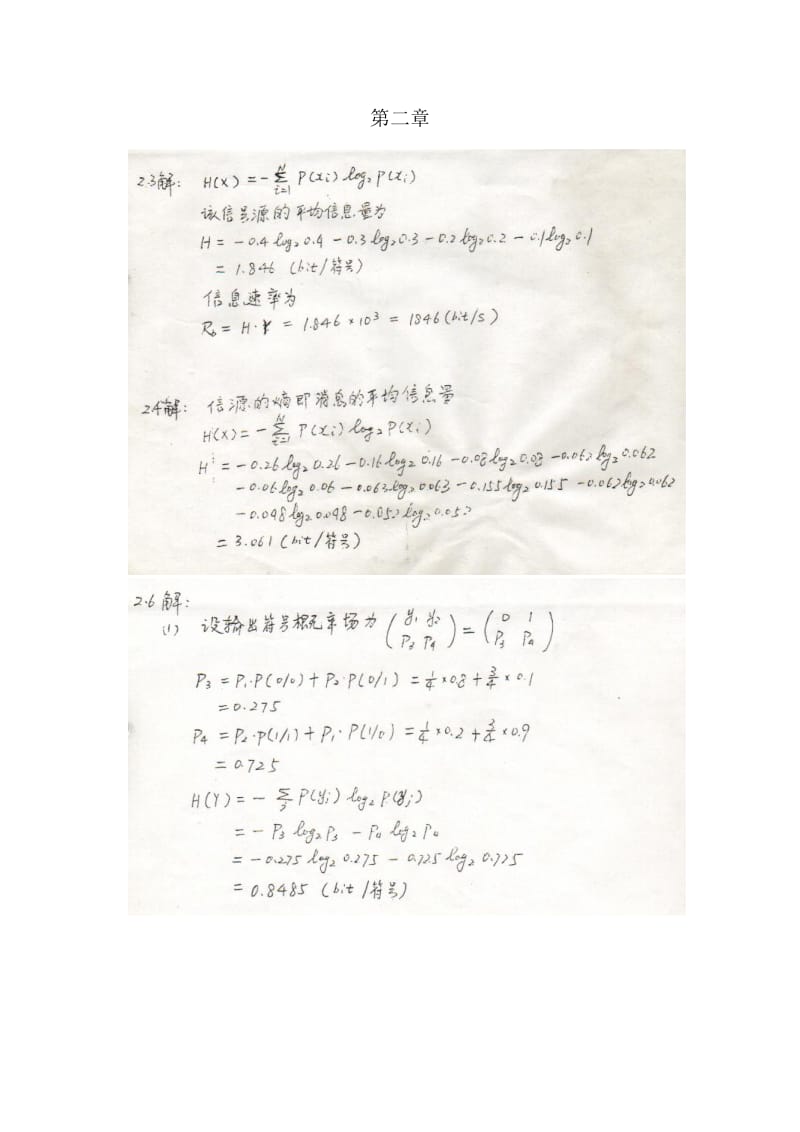 第二章
2.3解: H(X) = -∑_{i=1}^{N} P(x_i) log₂P(x_i)
该信号源的平均信息量为
H = -0.4log₂0.4 - 0.3log₂0.3 - 0.2log₂0.2 - 0.1log₂0.1
= 1.846 (bit/符号)
信息速率为
R_b = H·r = 1.846×10³ = 1846(bit/s)
2.4解: 信源的熵即消息的平均信息量
H(X) = -∑_{i=1}^{N} P(x_i)log₂P(x_i)
H = -0.26log₂0.26 - 0.16log₂0.16 - 0.08log₂0.08 - 0.062log₂0.062
-0.06log₂0.06 - 0.063log₂0.063 - 0.155log₂0.155 - 0.062log₂0.062
-0.048log₂0.048 - 0.052log₂0.052
= 3.061 (bit/符号)
2.6解:
(1) 设输出符号概率场为 (y₁ y₂ / P₃ P₄) = (0 1 / P₃ P₄)
P₃ = P₁·P(0/0) + P₂·P(0/1) = 1/4×0.8 + 3/4×0.1
= 0.275
P₄ = P₂·P(1/1) + P₁·P(1/0) = 1/4×0.2 + 3/4×0.9
= 0.725
H(Y) = -∑_j P(y_j) log₂P(y_j)
= -P₃log₂P₃ - P₄log₂P₄
= -0.275log₂0.275 - 0.725log₂0.725
= 0.8485 (bit/符号)